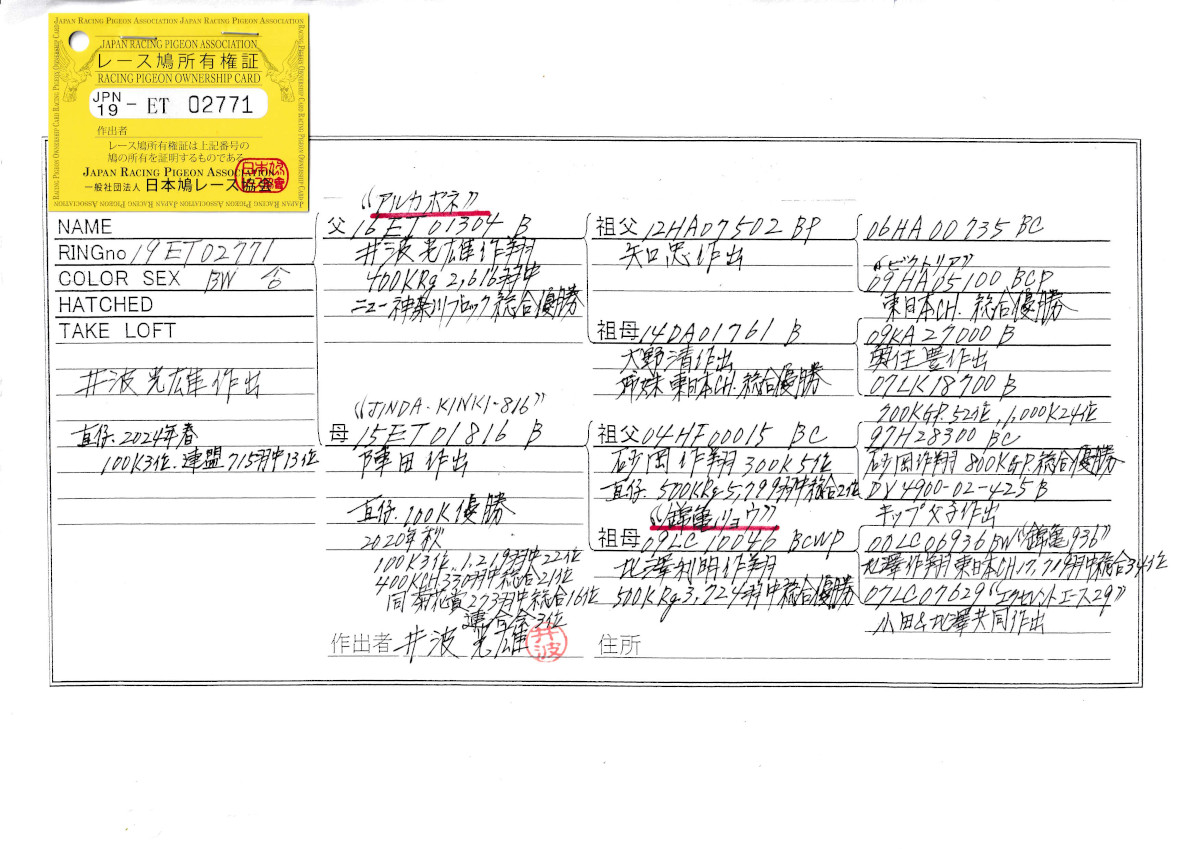 JAPAN RACING PIGEON ASSOCIATION JAPAN RACING PIGEON ASSOCIATION
JAPAN RACING PIGEON ASSOCIATION
レース鳩所有権証
RACING PIGEON OWNERSHIP CARD
JPN
19 - ET 02771
作出者
レース鳩所有権証は上記番号の
鳩の所有を証明するものである。
JAPAN RACING PIGEON ASSOCIATION
一般社団法人 日本鳩レース協会
NAME
RINGno 19ET02771
COLOR SEX BW 合
HATCHED
TAKE LOFT
井波光雄作出
直仔. 2024年春
100K3位. 連盟715羽中13位
“アルカポネ”
父 16ET01304 B
井波光雄作翔
400KRg 2,616羽中
ニュー神奈川ブロック総合優勝
“JINDA-KINKI-816”
母 15ET01816 B
陣田作出
直仔. 100K優勝
2020年秋
100K3位. 1,219羽中22位
400KCH330羽中総合21位
同 菊花賞273羽中総合16位
連合会3位
作出者 井波光雄
井波
祖父 12HA07502 BP
矢口忠作出
祖母 14DA01761 B
大野清作出
姉妹 東日本CH. 総合優勝
祖父 04HF00015 BC
砂岡作翔 300K5位
直仔. 500KRg5,799羽中総合2位
“錦亀リョウ”
祖母 09LC10046 BCWP
北澤利明作翔
500KRg3,724羽中総合優勝
住所
06HA00735 BC
“ビクトリア”
09HA05100 BCP
東日本CH. 総合優勝
09KA27000 B
奥住豊作出
07LK18700 B
700KGP.52位, 1,000K24位
97H28300 BC
砂岡作翔 800KGP.総合優勝
DV4900-02-425 B
キップ父子作出
00LC06936BW“錦亀936”
北澤作翔 東日本CH17,719羽中総合34位
07LC07629“エクセレントエース29”
小田&北澤共同作出